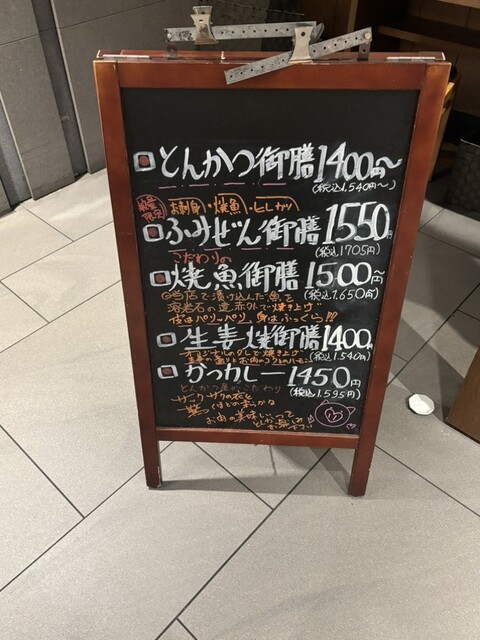 とんかつ御膳1400円~
(税込1,540円~)
数量限定 お刺身・焼魚・ヒレカツ
ふみぜん御膳1550円
(税込1705円)
こだわりの
焼魚御膳1500円~
(税込1,650円)
当店で漬け込んだ魚を
溶岩石の遠赤外で焼き上げ
皮はパリッパリ 身はふっくら!!
生姜焼御膳1400円
オリジナルのタレで焼き上げ
(税込1,540円)
カツカレー1450円
(税込1,595円)
とんかつ屋のこだわり
サクサクの衣と
お肉の美味しいって